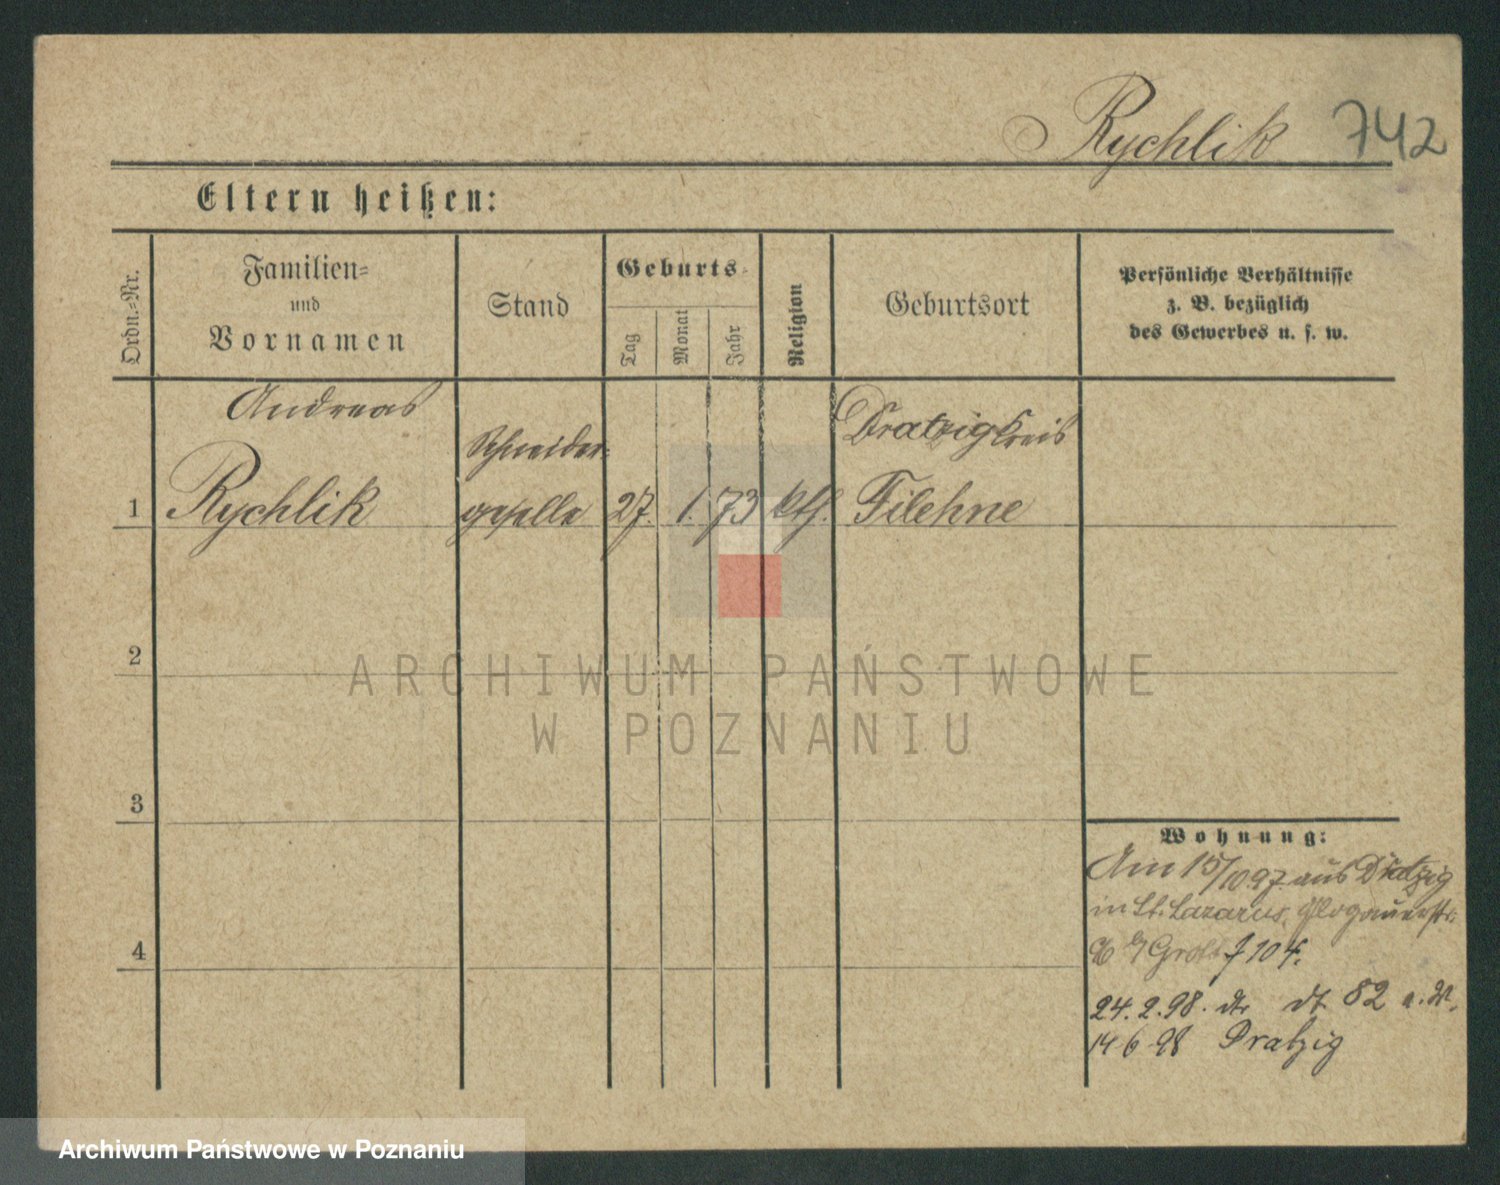 Rychlik 742
Eltern heißen:
Ordn.-Nr.
Familien-
und
Vornamen
Stand
Geburts-
Tag
Monat
Jahr
Religion
Geburtsort
Persönliche Verhältnisse
z. B. bezüglich
des Gewerbes u. s. w.
Andreas
Schneider- Dratzig Kreis
1 Rychlik geselle 27. 1. 73 kth. Filehne
2
ARCHIWUM PAŃSTWOWE
W POZNANIU
3
Wohnung:
Am 15/10 97 aus Dratzig
in St. Lazarus, Glogauerstr.
104.
24.2.98. 82
14 6 98 Dratzig
4
Archiwum Państwowe w Poznaniu